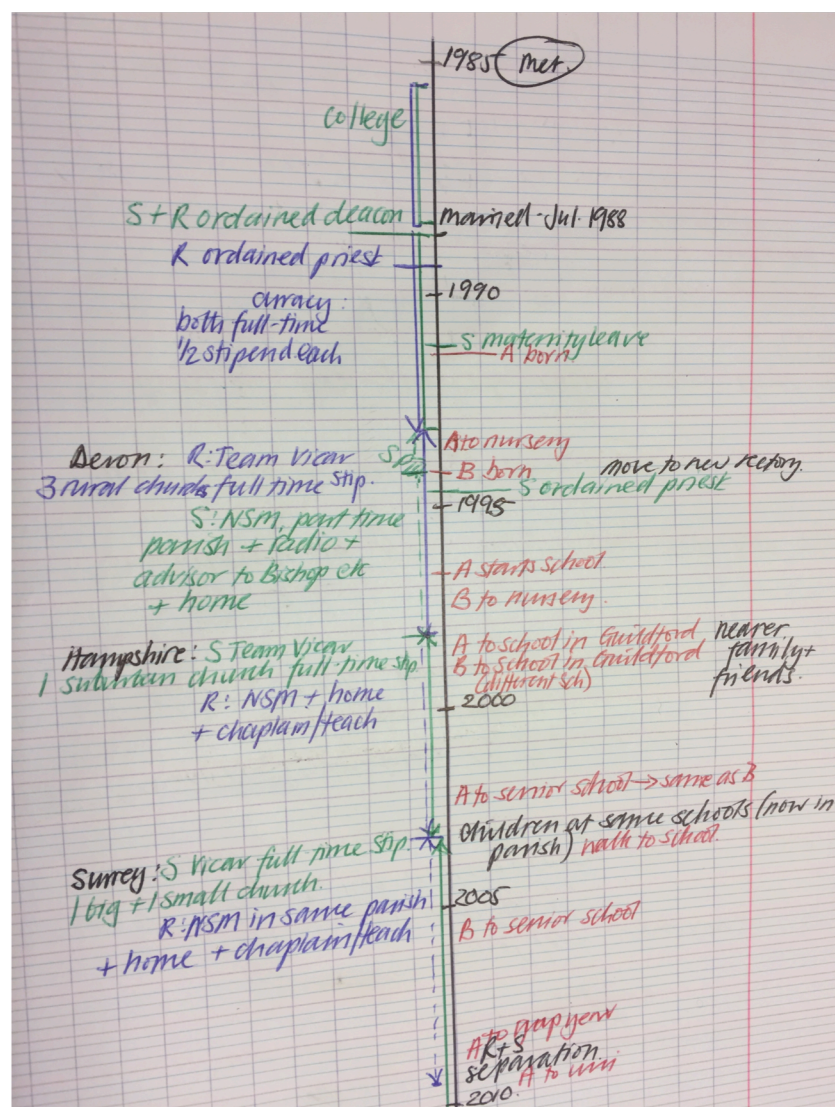 1985 met.
college
S + R ordained deacon
married - Jul. 1988
R ordained priest
1990
curacy:
both full-time
1/2 stipend each
S maternity leave
A born
A to nursery
Devon: R: Team Vicar
3 rural churches full time stip.
B born
move to new rectory.
S ordained priest
1995
S: NSM, part time
parish + radio +
advisor to Bishop etc
+ home
A starts school
B to nursery.
Hampshire: S Team Vicar
1 suburban church full time stip.
R: NSM + home
+ chaplain/teach
A to school in Guildford
B to school in Guildford
(different sch)
nearer
family +
friends.
2000
A to senior school → same as B
children at same schools (now in
parish) walk to school.
Surrey: S Vicar full time stip.
1 big + 1 small church.
R: NSM in same parish
+ home + chaplain/teach
2005
B to senior school
A to gap year
R + S
separation
A to uni
2010